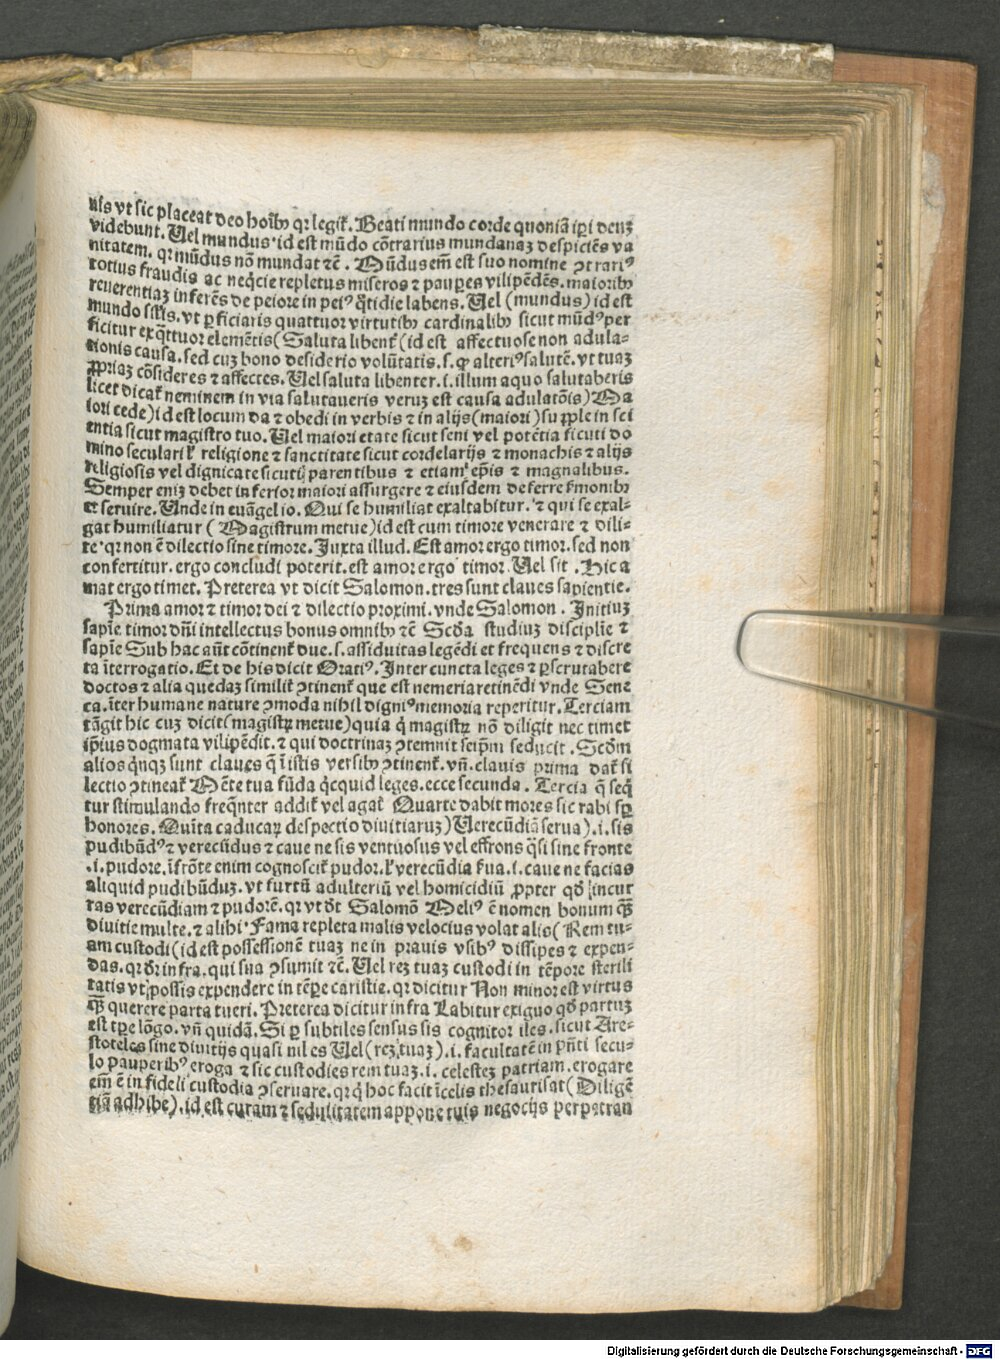 uis vt sic placeat deo hoībꝫ qꝛ legit᷑. Beati mundo corde quoniā ip̄i deuꝫ
videbunt. Uel mundus·id est mūdo cōtrarius mundanaꝫ despiciēs va
nitatem. qꝛ mūdus nō mundat ⁊c̄. Mūdus em̄ est suo nomine ↄtrariꝰ
totius fraudis ac neq̄cie repletus miseros ⁊ paupes vilipēdēs. maioribꝫ
reuerentiaꝫ inferēs de peiore in peiꝰ q̄tidie labens. Uel (mundus) id est
mundo sil̄is. vt ꝑficiaris quattuor virtutibꝫ cardinalibꝫ sicut mūdꝰ per
ficitur exq̄ttuor elemētis (Saluta libent᷑ (id est affectuose non adula-
tionis causa. sed cuꝫ bono desiderio volūtatis. s. ꝙ alteriꝰ salutē. vt tuaꝫ
ꝓpriaꝫ cōsideres ⁊ affectes. Uel saluta libenter. i. illum a quo salutaberis
licet dicat᷑ neminem in via salutaueris veruꝫ est causa adulatōis) Ma
iori cede) id est locum da ⁊ obedi in verbis ⁊ in alijs (maiori) su ꝑple in sci
entia sicut magistro tuo. Uel maiori etate sicut seni vel potētia sicuti do
mino seculari ł religione ⁊ sanctitate sicut cordelarijs ⁊ monachis ⁊ alijs
religiosis vel dignitate sicutij parentibus ⁊ etiam ep̄is ⁊ magnalibus.
Semper eniꝫ debet inferior maiori assurgere ⁊ eiusdem deferre ẜmonibꝫ
et seruire. Unde in euāgelio. Qui se humiliat exaltabitur. ⁊ qui se exal-
gat humiliatur ( Magistrum metue) id est cum timore venerare ⁊ dili-
te·qꝛ non ē dilectio sine timore. Juxta illud. Est amor ergo timor. sed non
confertitur. ergo concludi poterit. est amor ergo timor. Uel sit . Hic a
mat ergo timet. Preterea vt dicit Salomon. tres sunt claues sapientie.
Prima amor ⁊ timor dei ⁊ dilectio proximi. vnde Salomon . Initiuꝫ
sapīe timor dn̄i intellectus bonus omnibꝫ ⁊c̄ Scd̄a studiuꝫ disciplīe ⁊
sapīe Sub hac aūt cōtinent᷑ due. s. assiduitas legēdi et frequens ⁊ discre
ta īterrogatio. Et de his dicit Oratiꝰ. Inter cuncta leges ⁊ ꝑscrutabere
doctos ⁊ alia quedaꝫ similit᷑ ↄtinent᷑ que est nemeria retinēdi vnde Sene
ca. īter humane nature ↄmoda nihil digniꝰ memoria reperitur. Terciam
tāgit hic cuꝫ dicit (magistꝝ metue) quia q̄ magistꝝ nō diligit nec timet
ip̄ius dogmata vilipēdit. ⁊ qui doctrinaꝫ ↄtemnit seip̄m seducit . Scd̄m
alios q̄nqꝫ sunt claues q̄ ī istis versibꝫ ↄtinent᷑. vn̄. clauis prima dat᷑ si
lectio ↄtineat᷑ Mēte tua fūda q̄cquid leges. ecce secunda . Tercia q̄ seq̄
tur stimulando freq̄nter addit᷑ vel agat᷑ Quarte dabit mores sic rabi sꝑ
honores. Quīta caducaꝝ despectio diuitiaruꝫ) Uerecūdiā serua). i. sis
pudibūdꝰ ⁊ verecūdus ⁊ caue ne sis ventuosus vel effrons q̄si sine fronte
.i. pudore. ī frōte enim cognoscit᷑ pudor. ł verecūdia ẜua. i. caue ne facias
aliquid pudibūduꝫ. vt furtū adulteriū vel homicidiū ꝓpter qd̄ incur
ras verecūdiam ⁊ pudorē. qꝛ vt dt᷑ Salomō Meliꝰ ē nomen bonum qꝫ̄
diuitie multe. ⁊ alibi·Fama repleta malis velocius volat alis (Rem tu-
am custodi (id est possessionē tuaꝫ ne in prauis vsibꝰ dissipes ⁊ expen-
das. qꝛ dr̄ infra. qui sua ↄsumit ⁊c̄. Uel reꝫ tuaꝫ custodi in tēpore sterili
tatis vt possis expendere in tēꝑe caristie. qꝛ dicitur Non minor est virtus
qꝫ̄ querere parta tueri. Preterea dicitur infra Labitur exiguo qd̄ partuꝫ
est tꝑe lōgo. vn̄ quidā. Si ꝑ subtiles sensus sis cognitor iles. sicut Are-
stoteles sine diuitijs quasi nil es Uel (reꝫ tuaꝫ). i. facultatē in pn̄ti secu-
lo pauperibꝰ eroga ⁊ sic custodies rem tuaꝫ. i. celesteꝫ patriam. erogare
em̄ ē in fideli custodia ↄseruare. qꝛ q̄ hoc facit ī celis thesaurisat (Diligē
tiā adhibe). id est curam ⁊ sedulitatem appone tuis negocijs perpetran
Digitalisierung gefördert durch die Deutsche Forschungsgemeinschaft - DFG